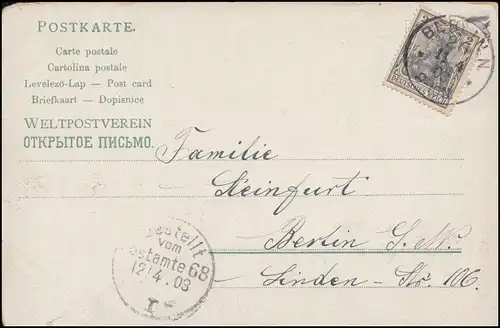 POSTKARTE.
Carte postale
Cartolina postale
Levelező-Lap — Post card
Briefkaart — Dopisnice
WELTPOSTVEREIN
ОТКРЫТОЕ ПИСЬМО.
BERLIN
DEUTSCHES REICH
Familie
Steinfurt
Berlin S. W.
Linden-Str. 106.
Bestellt
vom
Postamte 68
12/4.03